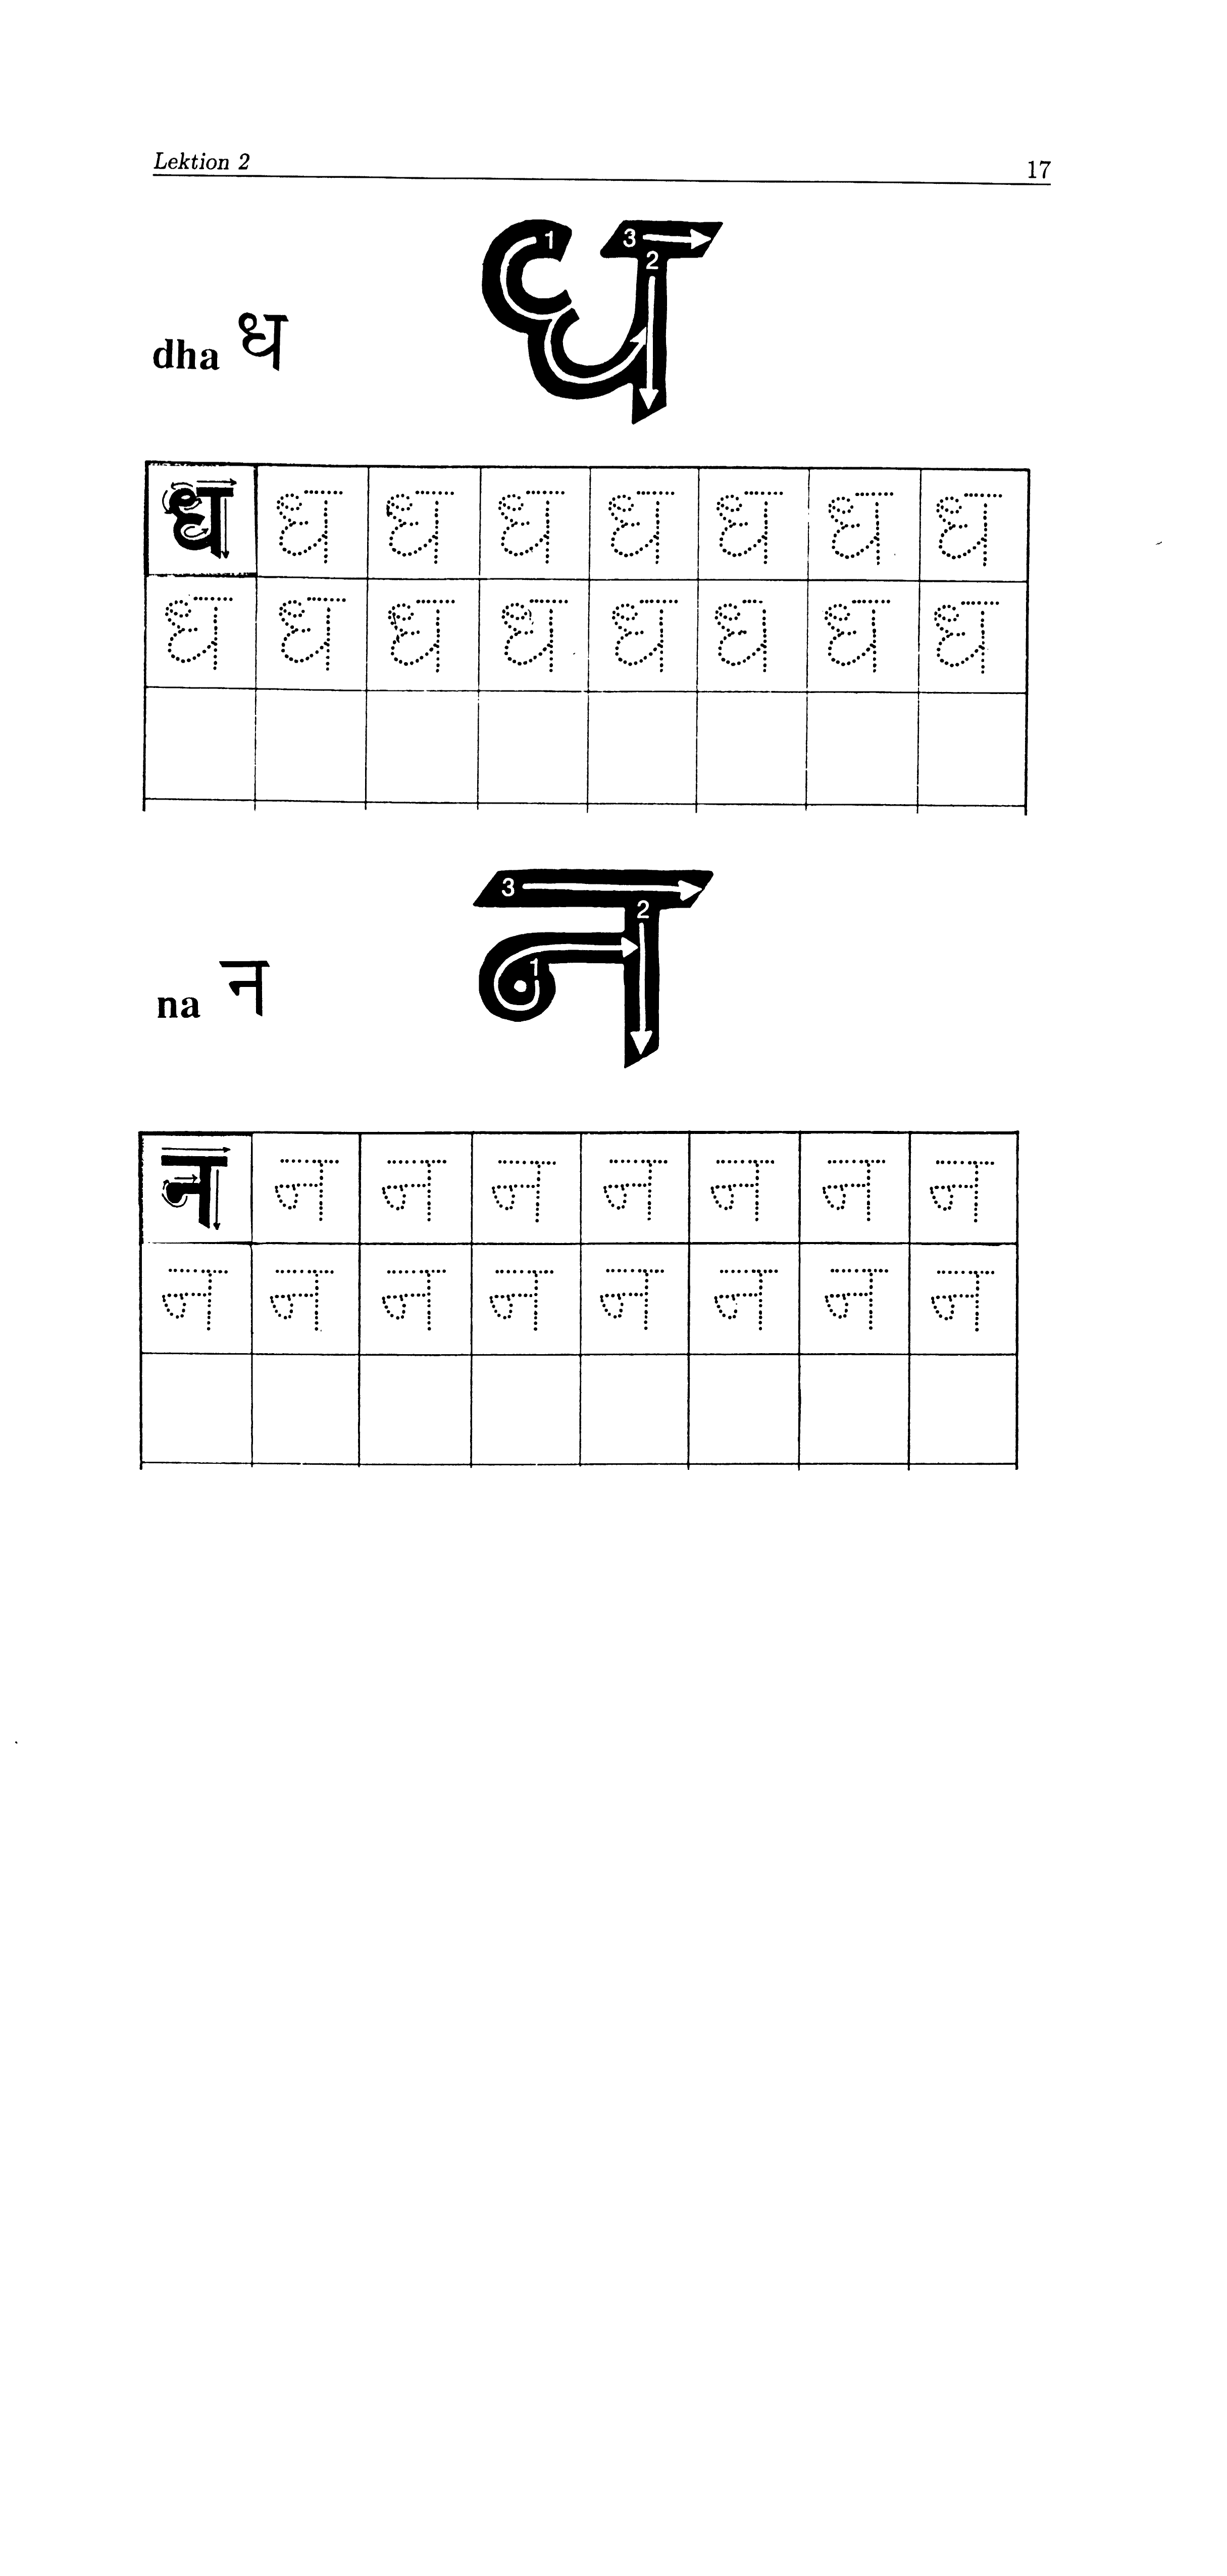 Lektion 2 17
ध
dha ध
ध ध ध ध ध ध ध ध
ध ध ध ध ध ध ध ध
न
na न
न न न न न न न न
न न न न न न न न